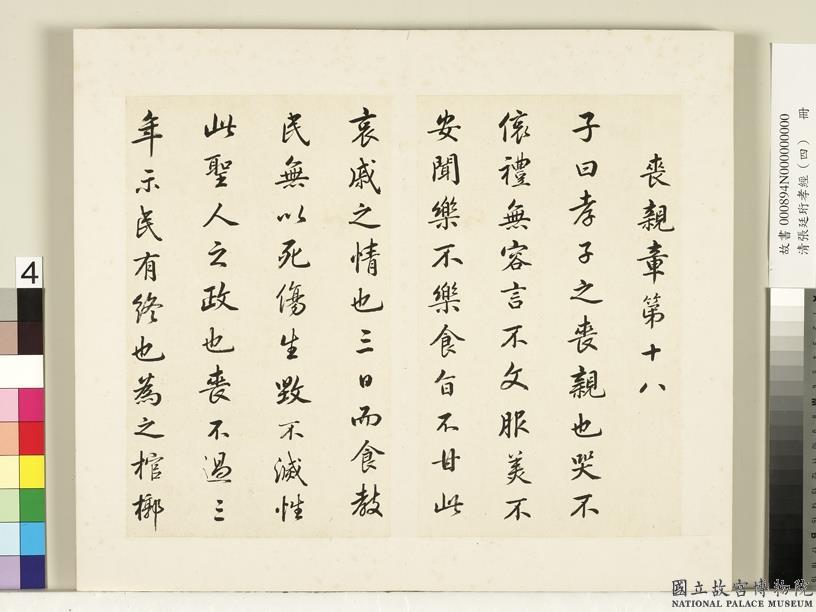 喪親章第十八
子曰孝子之喪親也哭不
偯禮無容言不文服美不
安聞樂不樂食旨不甘此
哀戚之情也三日而食教
民無以死傷生毀不滅性
此聖人之政也喪不過三
年示民有終也為之棺槨
故書000894N000000000
清張廷珩孝經（四） 冊
4
國立故宮博物院
NATIONAL PALACE MUSEUM